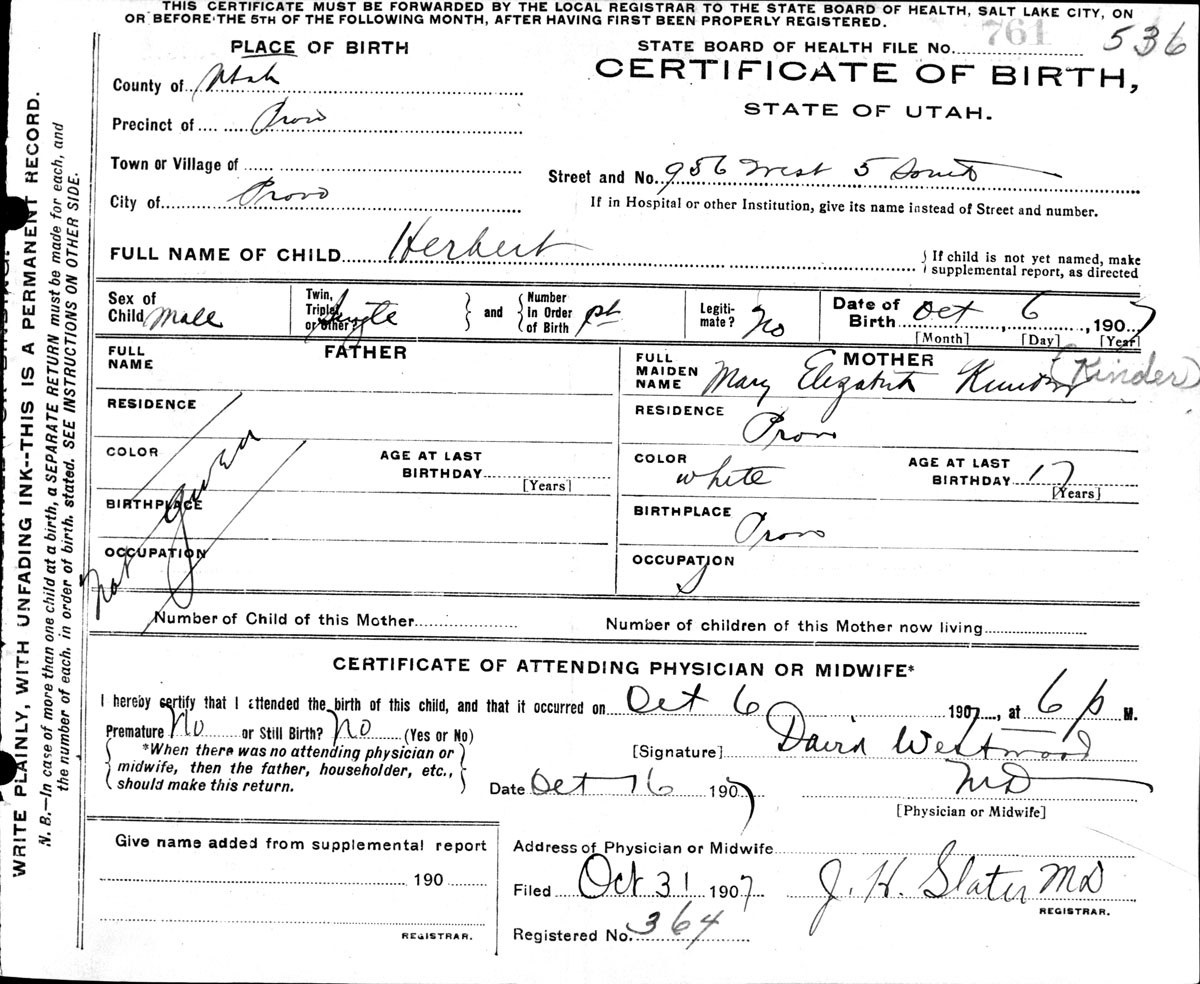 THIS CERTIFICATE MUST BE FORWARDED BY THE LOCAL REGISTRAR TO THE STATE BOARD OF HEALTH, SALT LAKE CITY, ON
OR BEFORE THE 5TH OF THE FOLLOWING MONTH, AFTER HAVING FIRST BEEN PROPERLY REGISTERED.
PLACE OF BIRTH
STATE BOARD OF HEALTH FILE NO. 761 536
CERTIFICATE OF BIRTH,
STATE OF UTAH.
County of Utah
Precinct of Provo
Town or Village of
City of Provo
Street and No. 956 West 5 South
If in Hospital or other Institution, give its name instead of Street and number.
FULL NAME OF CHILD Herbert
If child is not yet named, make
supplemental report, as directed
Sex of
Child Male
Twin,
Triplet
or other? Single
and
Number
In Order
of Birth 1st
Legiti-
mate? No
Date of
Birth Oct 6, 1907
[Month] [Day] [Year]
FATHER
FULL
NAME
RESIDENCE
COLOR
AGE AT LAST
BIRTHDAY
[Years]
BIRTHPLACE
OCCUPATION
not given
MOTHER
FULL
MAIDEN
NAME Mary Elizabeth (Kinder)
RESIDENCE
Provo
COLOR
white
AGE AT LAST
BIRTHDAY 17
[Years]
BIRTHPLACE
Provo
OCCUPATION
Number of Child of this Mother
Number of children of this Mother now living
CERTIFICATE OF ATTENDING PHYSICIAN OR MIDWIFE*
I hereby certify that I attended the birth of this child, and that it occurred on Oct 6 1907, at 6 p M.
Premature No or Still Birth? No (Yes or No)
*When there was no attending physician or
midwife, then the father, householder, etc.,
should make this return.
[Signature] David Westwood
MD
[Physician or Midwife]
Date Oct 16 1907
Give name added from supplemental report
190
REGISTRAR.
Address of Physician or Midwife
Filed Oct 31 1907
J. H. Slater MD
REGISTRAR.
Registered No. 364
WRITE PLAINLY, WITH UNFADING INK--THIS IS A PERMANENT RECORD.
N. B.—In case of more than one child at a birth, a SEPARATE RETURN must be made for each, and
the number of each, in order of birth, stated. SEE INSTRUCTIONS ON OTHER SIDE.